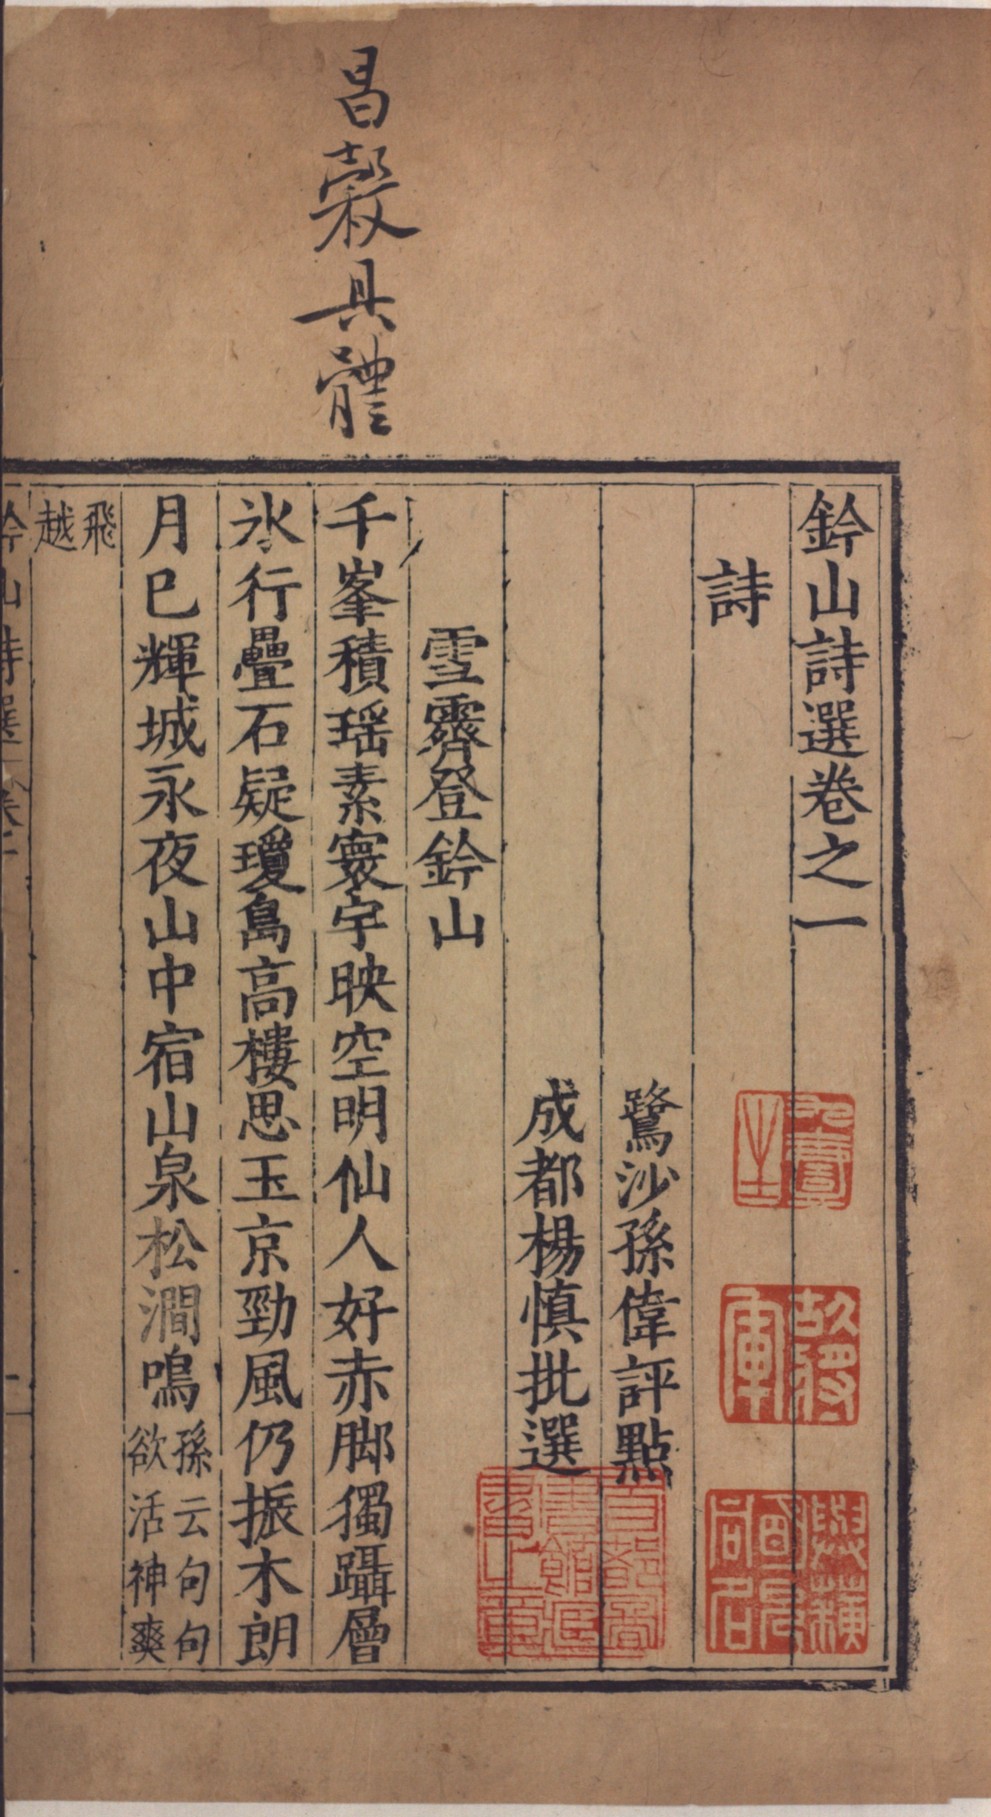 昌穀具體
鈐山詩選卷之一
詩
鷺沙孫偉評點
成都楊慎批選
雪霽登鈐山
千峯積瑶素寰宇映空明仙人好赤脚獨躡層
氷行疊石疑瓊島高樓思玉京勁風仍振木朗
月巳輝城永夜山中宿山泉松澗鳴
孫云句句
欲活神爽
飛
越